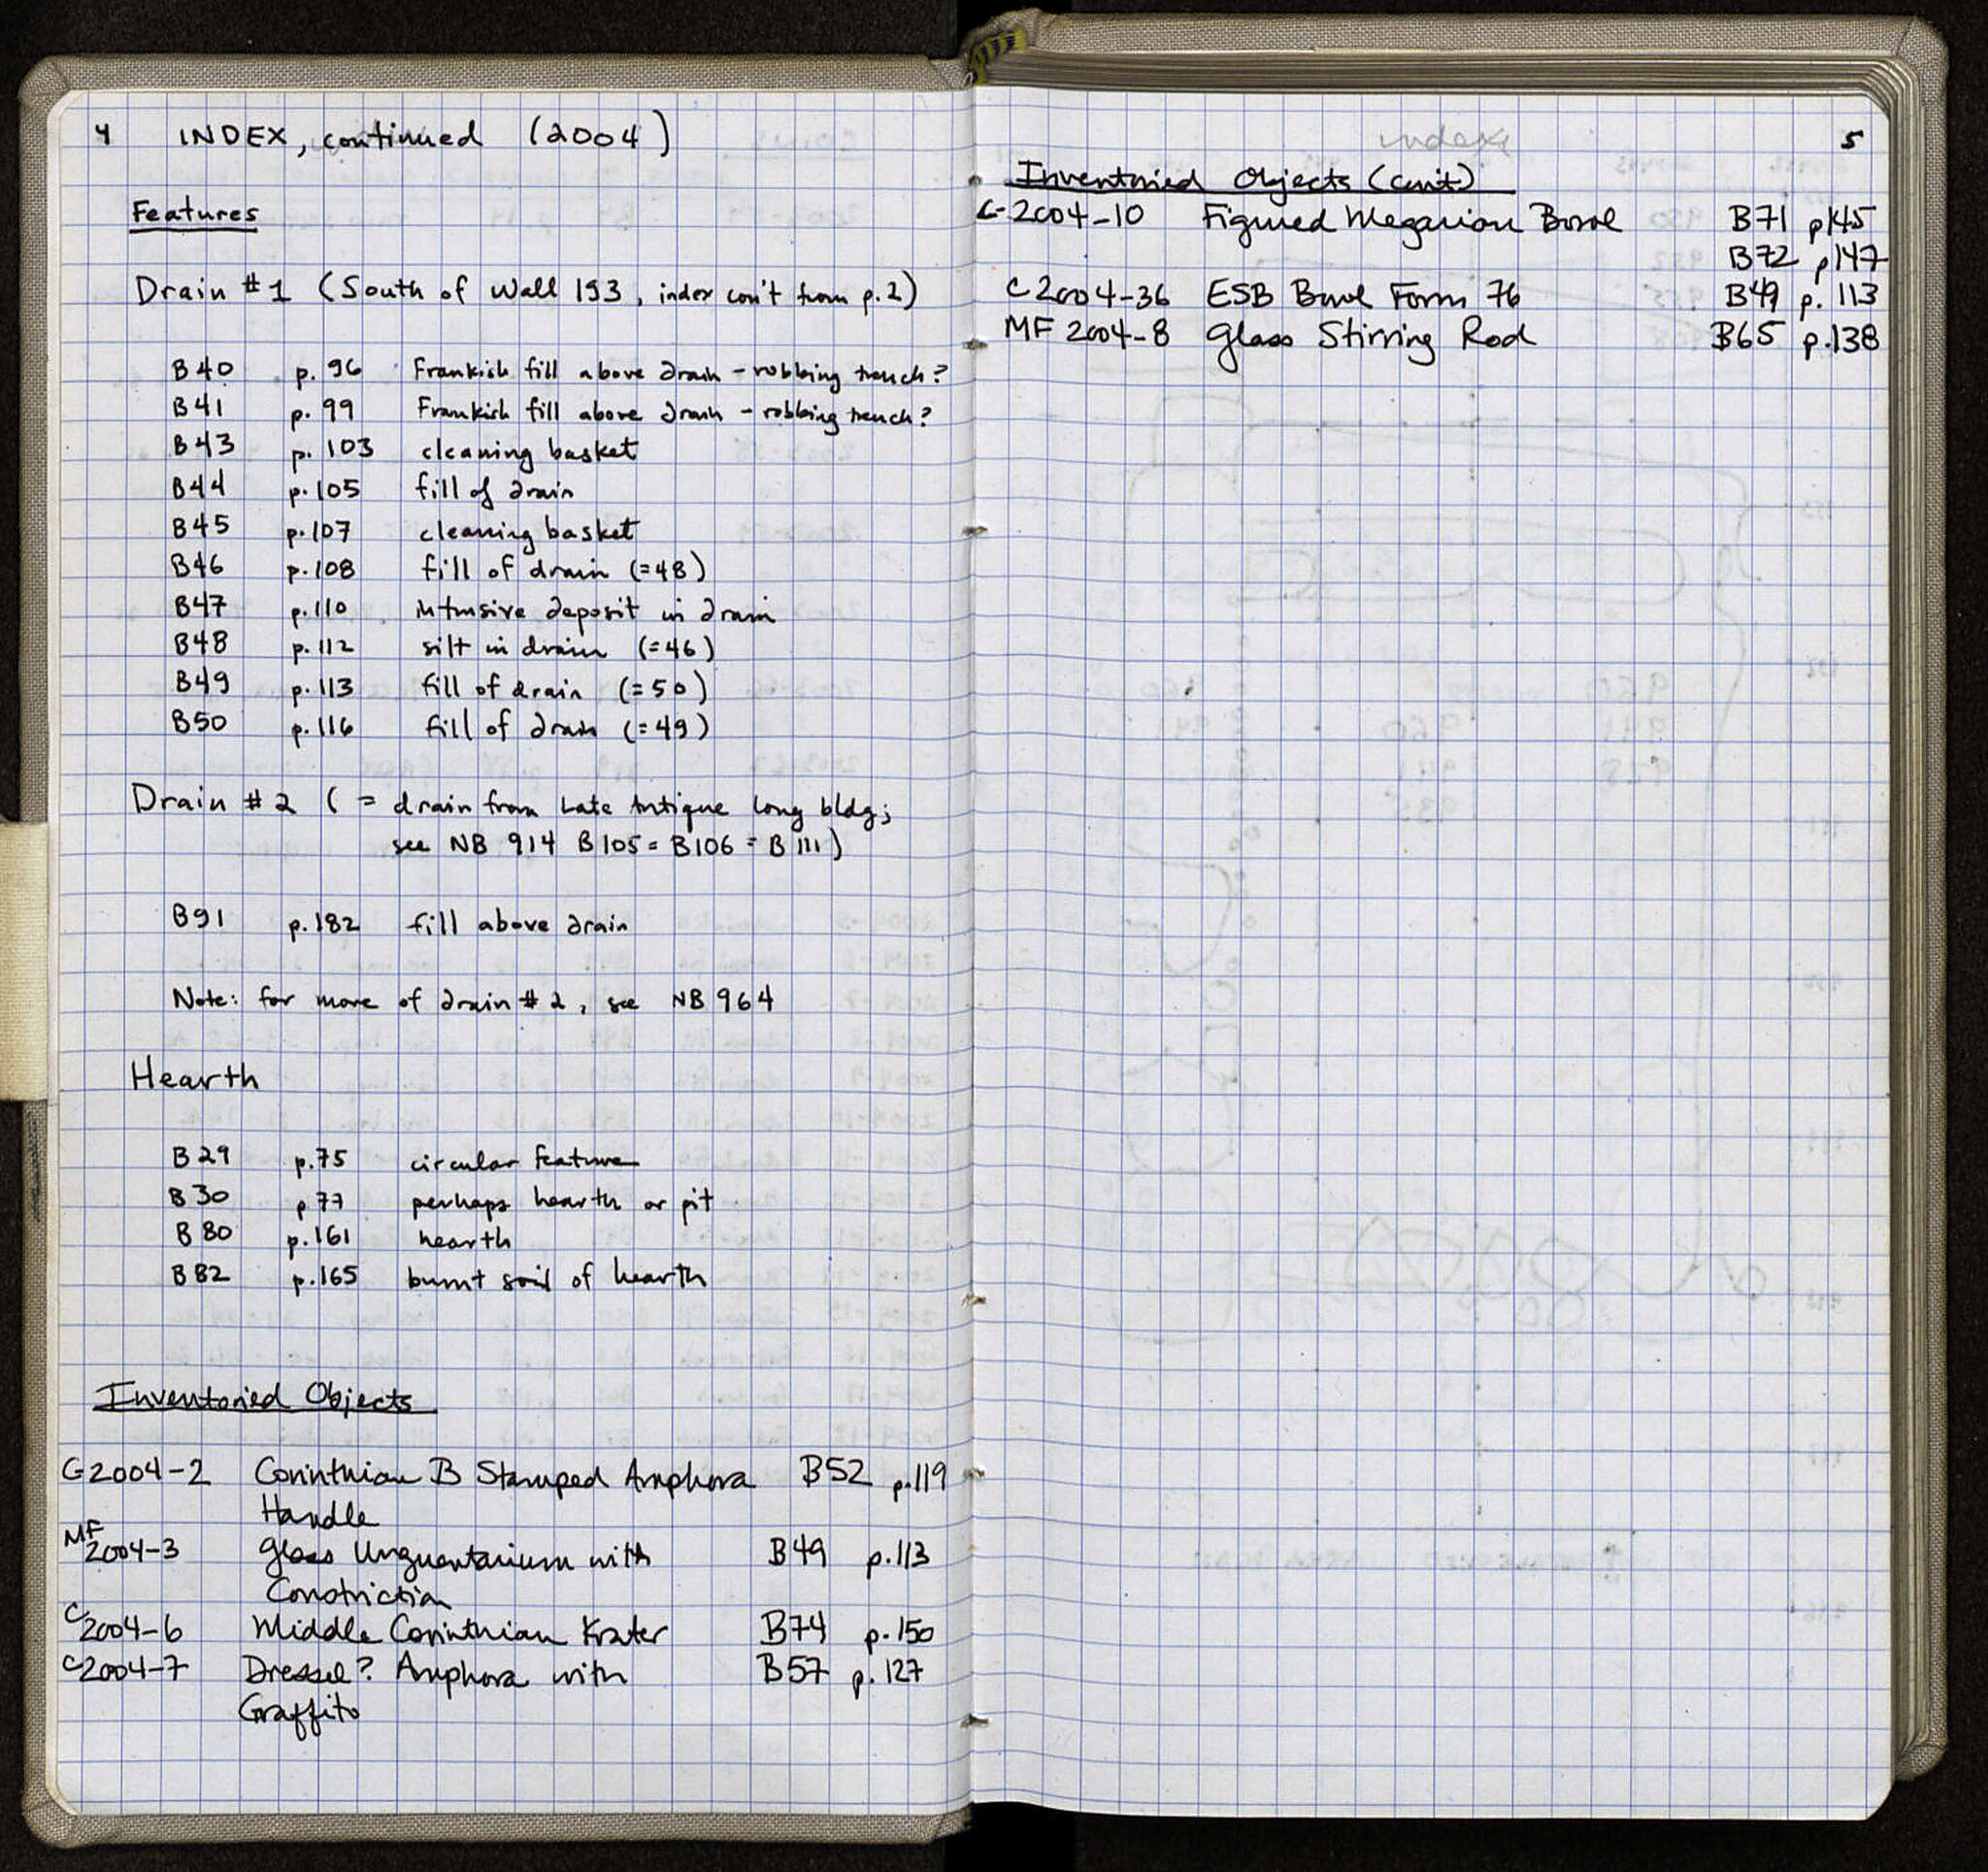 4 INDEX, continued (2004)
Features
Drain #1 (South of Wall 193, index con't from p.2)
B40 p. 96 Frankish fill above drain - robbing trench?
B41 p. 99 Frankish fill above drain - robbing trench?
B43 p. 103 cleaning basket
B44 p. 105 fill of drain
B45 p. 107 cleaning basket
B46 p. 108 fill of drain (=48)
B47 p. 110 intrusive deposit in drain
B48 p. 112 silt in drain (=46)
B49 p. 113 fill of drain (=50)
B50 p. 116 fill of drain (=49)
Drain #2 ( = drain from Late Antique long bldg;
see NB 914 B105 = B106 = B111)
B91 p. 182 fill above drain
Note: for more of drain #2, see NB 964
Hearth
B29 p. 75 circular feature
B30 p. 77 perhaps hearth or pit
B80 p. 161 hearth
B82 p. 165 burnt soil of hearth
Inventoried Objects
C2004-2 Corinthian B Stamped Amphora B52 p. 119
Handle
MF 2004-3 Glass Unguentarium with B49 p. 113
Constriction
C2004-6 Middle Corinthian Krater B74 p. 150
C2004-7 Dressel? Amphora with B57 p. 127
Graffito
index 5
Inventoried Objects (con't)
C-2004-10 Figured Megarian Bowl B71 p145
B72 p147
C2004-36 ESB Bowl Form 76 B49 p. 113
MF 2004-8 Glass Stirring Rod B65 p. 138